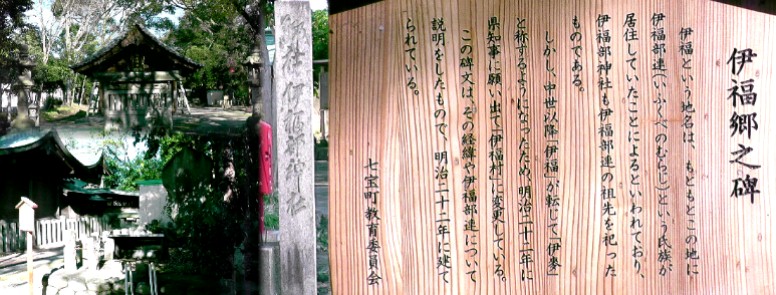 郷社 伊福部神社
伊福郷之碑
伊福という地名は、もともとこの地に
伊福部連(いふくべのむらじ)という氏族が
居住していたことによるといわれており、
伊福部神社も伊福部連の祖先を祀った
ものである。
しかし、中世以降「伊福」が転じて「伊麥」
と称するようになったため、明治二十一年に
県知事に願い出て「伊福村」に変更している。
この碑文は、その経緯や伊福部連について
説明をしたもので、明治二十二年に建て
られている。
七宝町教育委員会